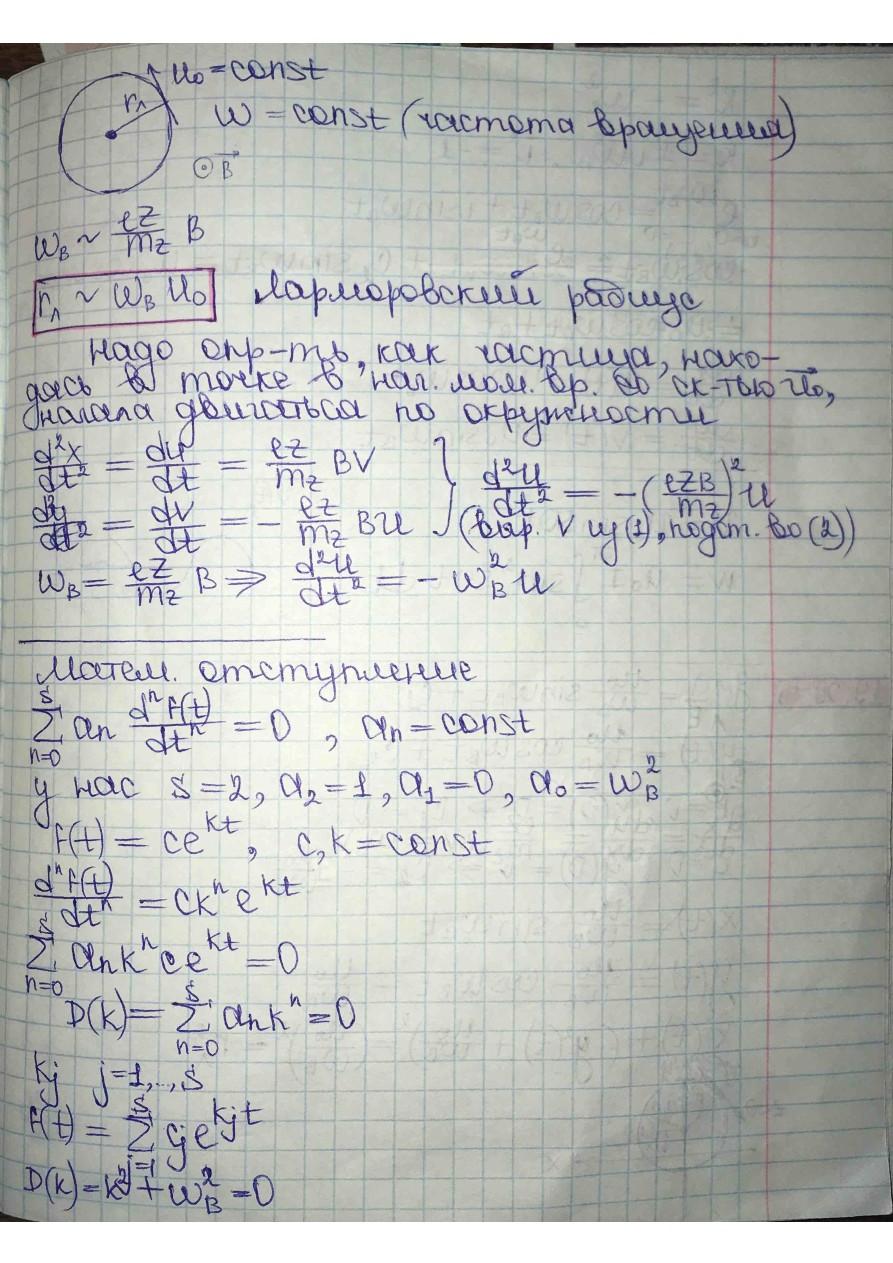 u₀ = const
r_л
w = const (частота вращения)
⊙ B⃗
w_B ~ eZ/m_Z B
r_л ~ w_B u₀ Ларморовский радиус
надо опр-ть, как частица, нахо-
дясь в точке в нач. мом. вр. со ск-тью u⃗₀,
начала двигаться по окружности
d²x/dt² = du/dt = eZ/m_Z BV
d²y/dt² = dV/dt = - eZ/m_Z Bu
} d²u/dt² = -(eZB/m_Z)² u
(выр. V из (1), подст. во (2))
w_B = eZ/m_Z B ⇒ d²u/dt² = - w_B² u
Матем. отступление
∑_{n=0}^{s} a_n dⁿf(t)/dtⁿ = 0 , a_n = const
у нас s = 2, a₂ = 1, a₁ = 0, a₀ = w_B²
f(t) = ce^{kt}, c, k = const
dⁿf(t)/dtⁿ = ckⁿe^{kt}
∑_{n=0}^{s} a_n kⁿ ce^{kt} = 0
D(k) = ∑_{n=0}^{s} a_n kⁿ = 0
k_j j = 1,..,s
f(t) = ∑_{j=1}^{s} c_j e^{k_j t}
D(k) = k² + w_B² = 0